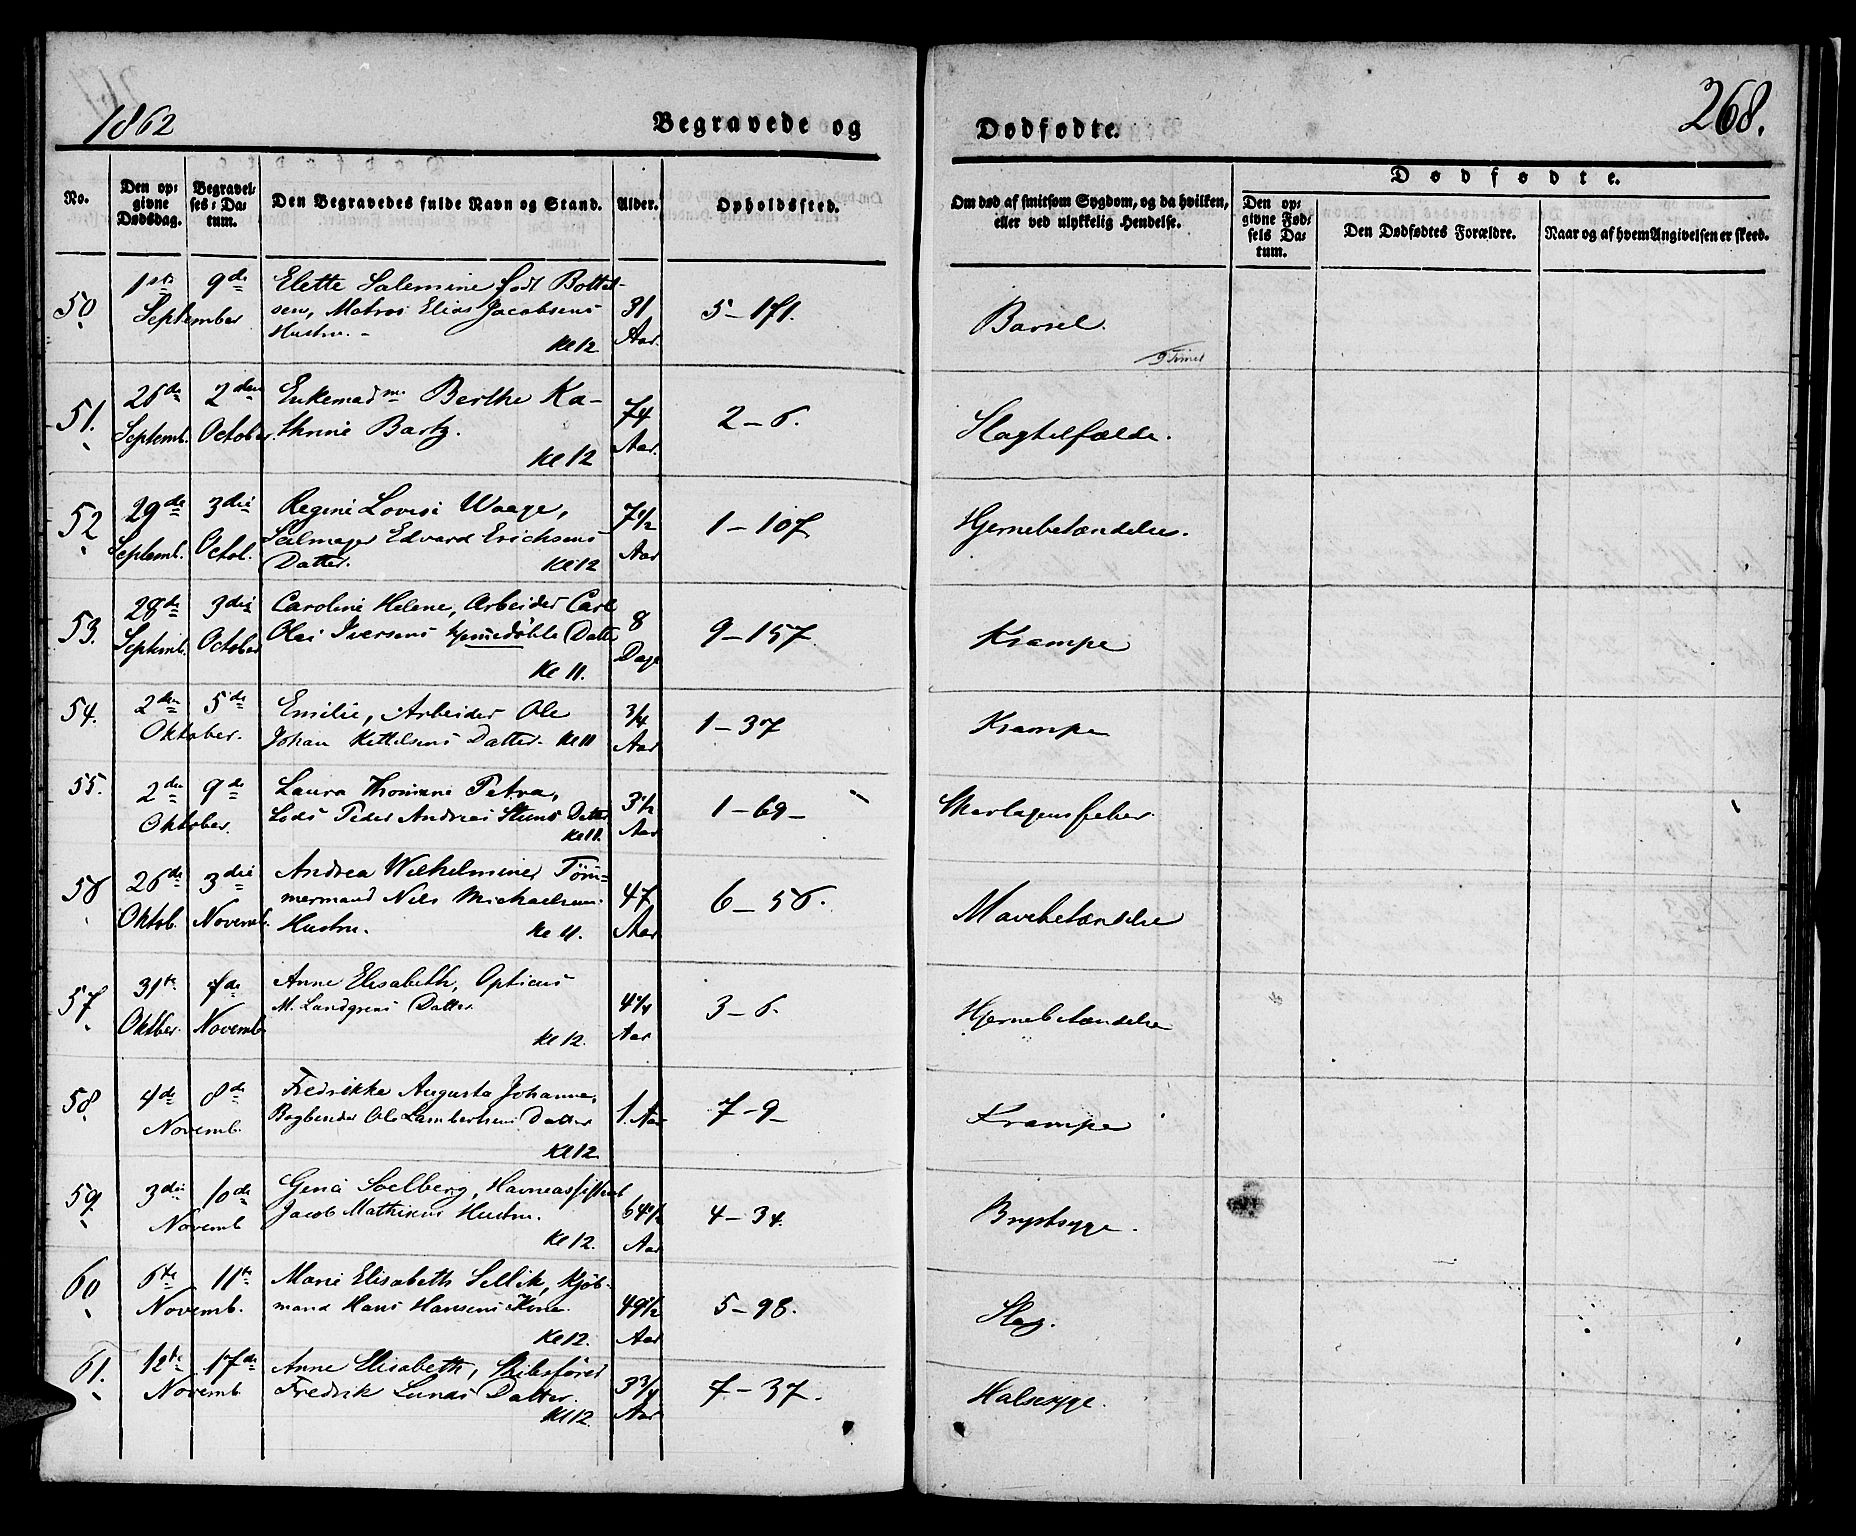 1862
Begravede og
Dødfødte.
268.
No.
Den op=
givne
Dødsdag.
Begravel=
ses=Da=
tum.
Den Begravedes fulde Navn og Stand.
Alder.
Opholdssted.
Om død af smitsom Sygdom, og da hvilken,
eller ved ulykkelig Hendelse.
Dødfødte.
Den op=
givne Fød=
sels Da=
tum.
Den Dødfødtes Forældre.
Naar og af hvem Angivelsen er skeed.
50 1ste 9de Elette Salemine født Bottel-
September sen, Matros Elias Jacobsens 31 5-171.
Hustru.- Kl 12 Aar. Barsel.
51. 26de 2den Enkemadme Berthe Ka- 74 2-6.
Septemb. October thrine Bartz. Aar. Slagtilfælde.
Kl 12
52 29de 3die Regine Lovise Waage, 7 1/2 1-107
Septemb. Octob. Seilmager Edvard Erichsens Aar Hjernebetændelse.
Datter. Kl 12
53. 28de 3die Caroline Helene, Arbeider Carl 8 9-157.
Septemb. October Olai Iversens hjemmedøbte Datter Dage Krampe
Kl 11.
54. 2den 5de Emilie, Arbeider Ole 3/4 1-37
Oktober. Johan Kettelsens Datter. Kl 11 Aar Krampe
55. 2den 9de Laura Thomine Petra, 3 1/2 1-69-
Oktober. Lods Peder Andreas Datter Aar Skarlagensfeber.
Kl 11.
56 26de 3die Andrea Wilhelmine, Tøm- 47 6-56.
Oktob. Novemb. mermand Nils Michaelsens Aar Mavebetændelse
Hustru. Kl 11.
57. 31te 7de Anne Elisabeth, Opticus 4 1/4 3-6.
Oktber. Novemb M. Landgrens Datter. Aar Hjernebetændelse
Kl 12.
58. 4de 8de Fredrikke Augusta Johanne, 1. Aar 7-9-
Novemb. Bogbinder Ole Lambertsens Datter Krampe
Kl 12.
59. 3die 10de Gena Soelberg, Havneassistent 64 1/2 4-34.
Novemb Jacob Mathisens Hustru. Aar Brystsyge.
Kl 12.
60 6te 11te Marie Elisabeth Sellik, Kjøb- 49 1/2 5-98.
Novemb. mand Hans Hansens Kone. Aar Slag.
Kl 12.
61. 12te 17de Anne Elisabeth, Skibsfører 3 3/4 7-37.
Novemb Fredrik Lunds Datter. Aar Halssyge.
Kl 12.